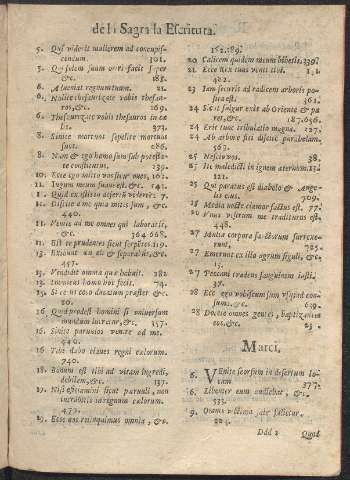 de la Sagrada Escritura.
5. Qui viderit mulierem ad concupis-
centiam. 301.
5. Qui solem suum oriri facit super
&c. 185.
6. Adveniat regnum tuum. 21.
6. Nolite thesaurizare vobis thesau-
ros, &c. 169.
6. Thesaurizate vobis thesauros in cæ
lis. 373.
8. Sinite mortuos sepelire mortuos
suos. 286.
8. Nam & ego homo sum sub potesta-
te constitutus. 339.
10. Ecce ego mitto vos sicut oves, 161.
11. Iugum meum suave est, &c. 141.
11. Quid existis in desertum videre? 7.
11. Discite a me quia mitis sum, &c
440.
11. Venite ad me omnes qui laboratis,
&c. 364. 668.
13. Et separabis, &c.
457.
13. Vendidit omnia quæ habuit. 282.
13. Inimicus homo hoc fecit. 74.
15. Si cæcus cæco ducatum præstet &c
20.
16. Quid prodest homini si universum
mundum lucretur, &c. 157.
16. Sinite parvulos venire ad me.
440.
16. Tibi dabo claves regni cælorum.
740.
18. Bonum est tibi ad vitam ingredi,
debilem, &c. 137.
18. Nisi efficiamini sicut parvuli, non
intrabitis in regnum cælorum.
437.
19. Ecce nos reliquimus omnia, &c.
182. 189.
20 Calicem quidem meum bibetis. 239.
21 Ecce Rex tuus venit tibi. 131.
482.
23 Iam securis ad radicem arboris po-
sita est. 361.
24 Sicut fulgur exit ab Oriente & pa
&c. 187. 636.
24 Erit tunc tribulatio magna. 227.
24 Ab arbore fici discite parabolam.
563.
25 Nescio vos. 38.
25 Ite maledicti in ignem æternum. 134
121.
25 Qui paratus est diabolo & Ange-
lis eius. 709.
25 Media nocte clamor factus est. 77.
26 Unus vestrum me traditurus est,
448.
27 Multa corpora sanctorum surrexe-
runt. 705.
27 Emerunt ex illo agrum figuli, &c.
13.
27 sanguinem iusti,
37.
28 Ecce ego vobiscum sum usque ad con-
sum, &c. 639.
28 Docete omnes gentes, baptizantes
eos, &c. 23.
Marci.
6. VEnite seorsum in desertum lo-
cum 377.
6. Libenter eum audiebat, &c.
533.
9. Omnis victima sale salietur.
224.
Ddd 2 Quod